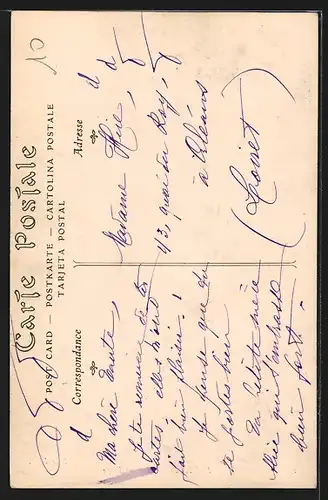 Carte Postale
POST CARD — POSTKARTE — CARTOLINA POSTALE
TARJETA POSTAL
Correspondance
Adresse
Ma chère tante,
Je te remercie de tes
cartes elles m'ont
fait bien plaisir !
Je pense que tu
te portes bien
Ta petite nièce
Alice qui t'embrasse
bien fort.
Madame
43, quai du Roy,
à Orléans
(Loiret)
10